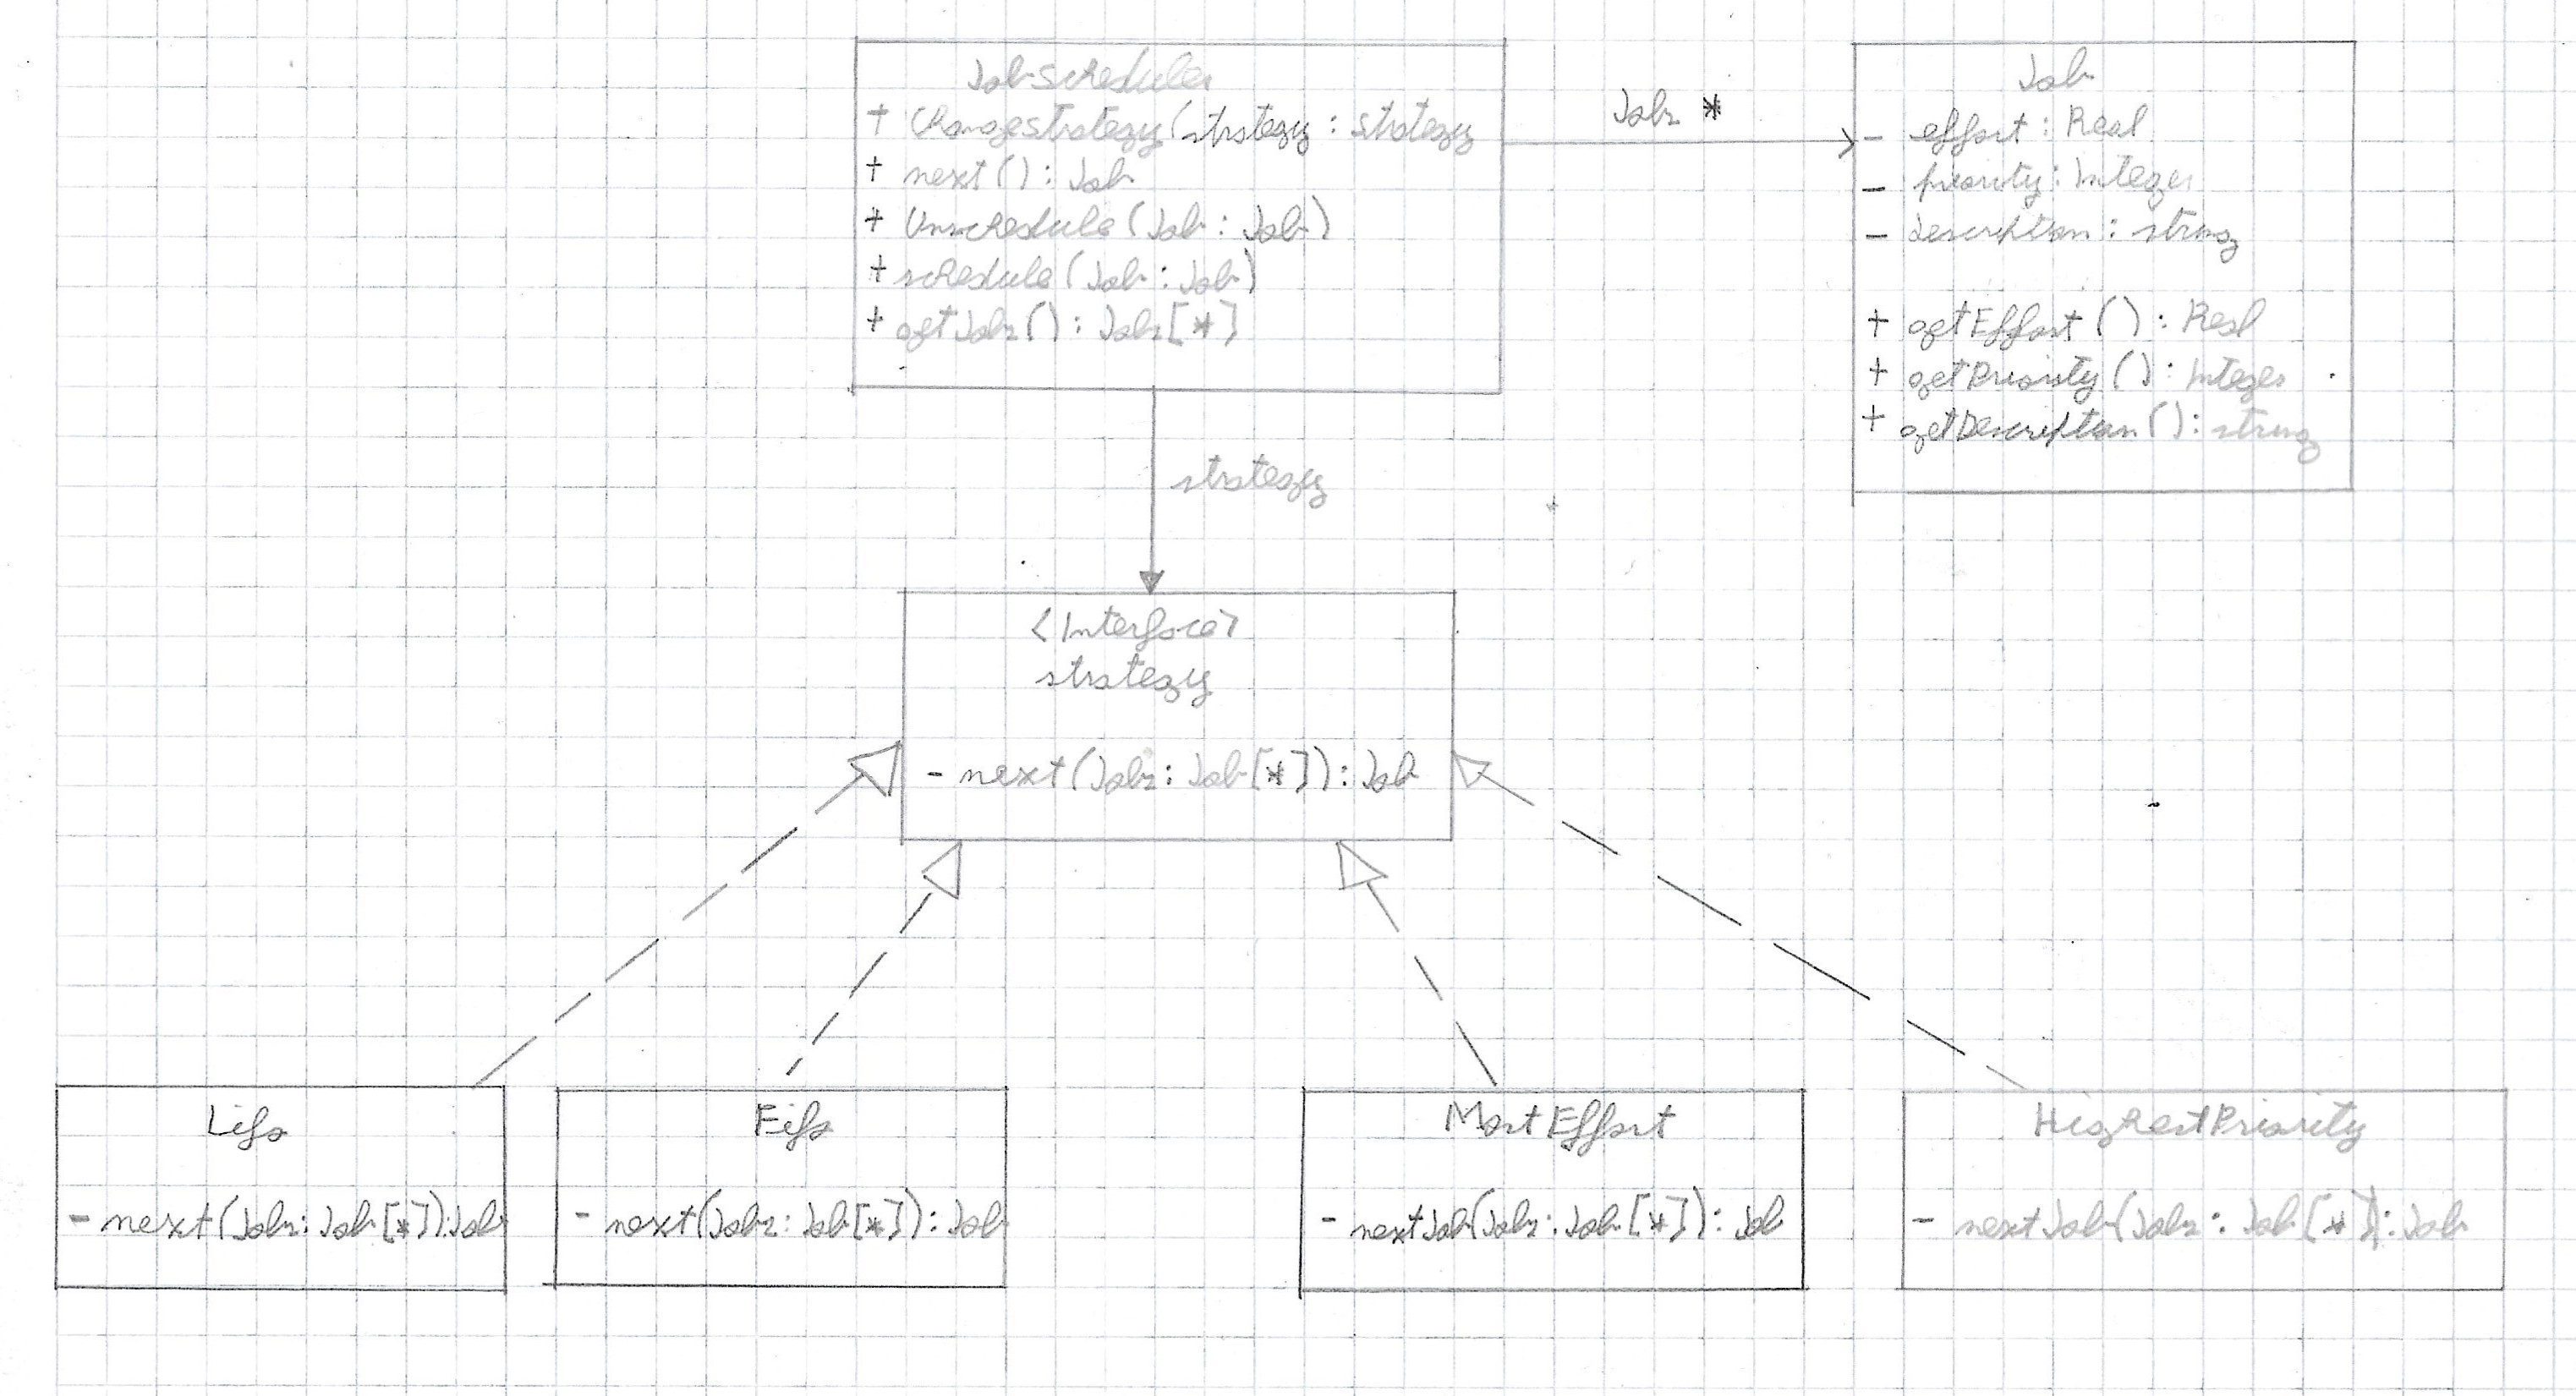 JobScheduler
+ Changestrategy(strategy : strategy
+ next() : Job
+ Unschedule(Job : Job)
+ schedule(Job : Job)
+ getJobs() : Jobs[*]
Jobs *
Job
- effort : Real
- priority : Integer
- description : string
+ getEffort() : Real
+ getPriority() : Integer
+ getDescription() : string
strategy
<Interface>
strategy
- next(Jobs : Job[*]) : Job
Lifo
- next(Jobs : Job[*]) : Job
Fifo
- next(Jobs : Job[*]) : Job
MostEffort
- nextJob(Jobs : Job[*]) : Job
HighestPriority
- nextJob(Jobs : Job[*]) : Job